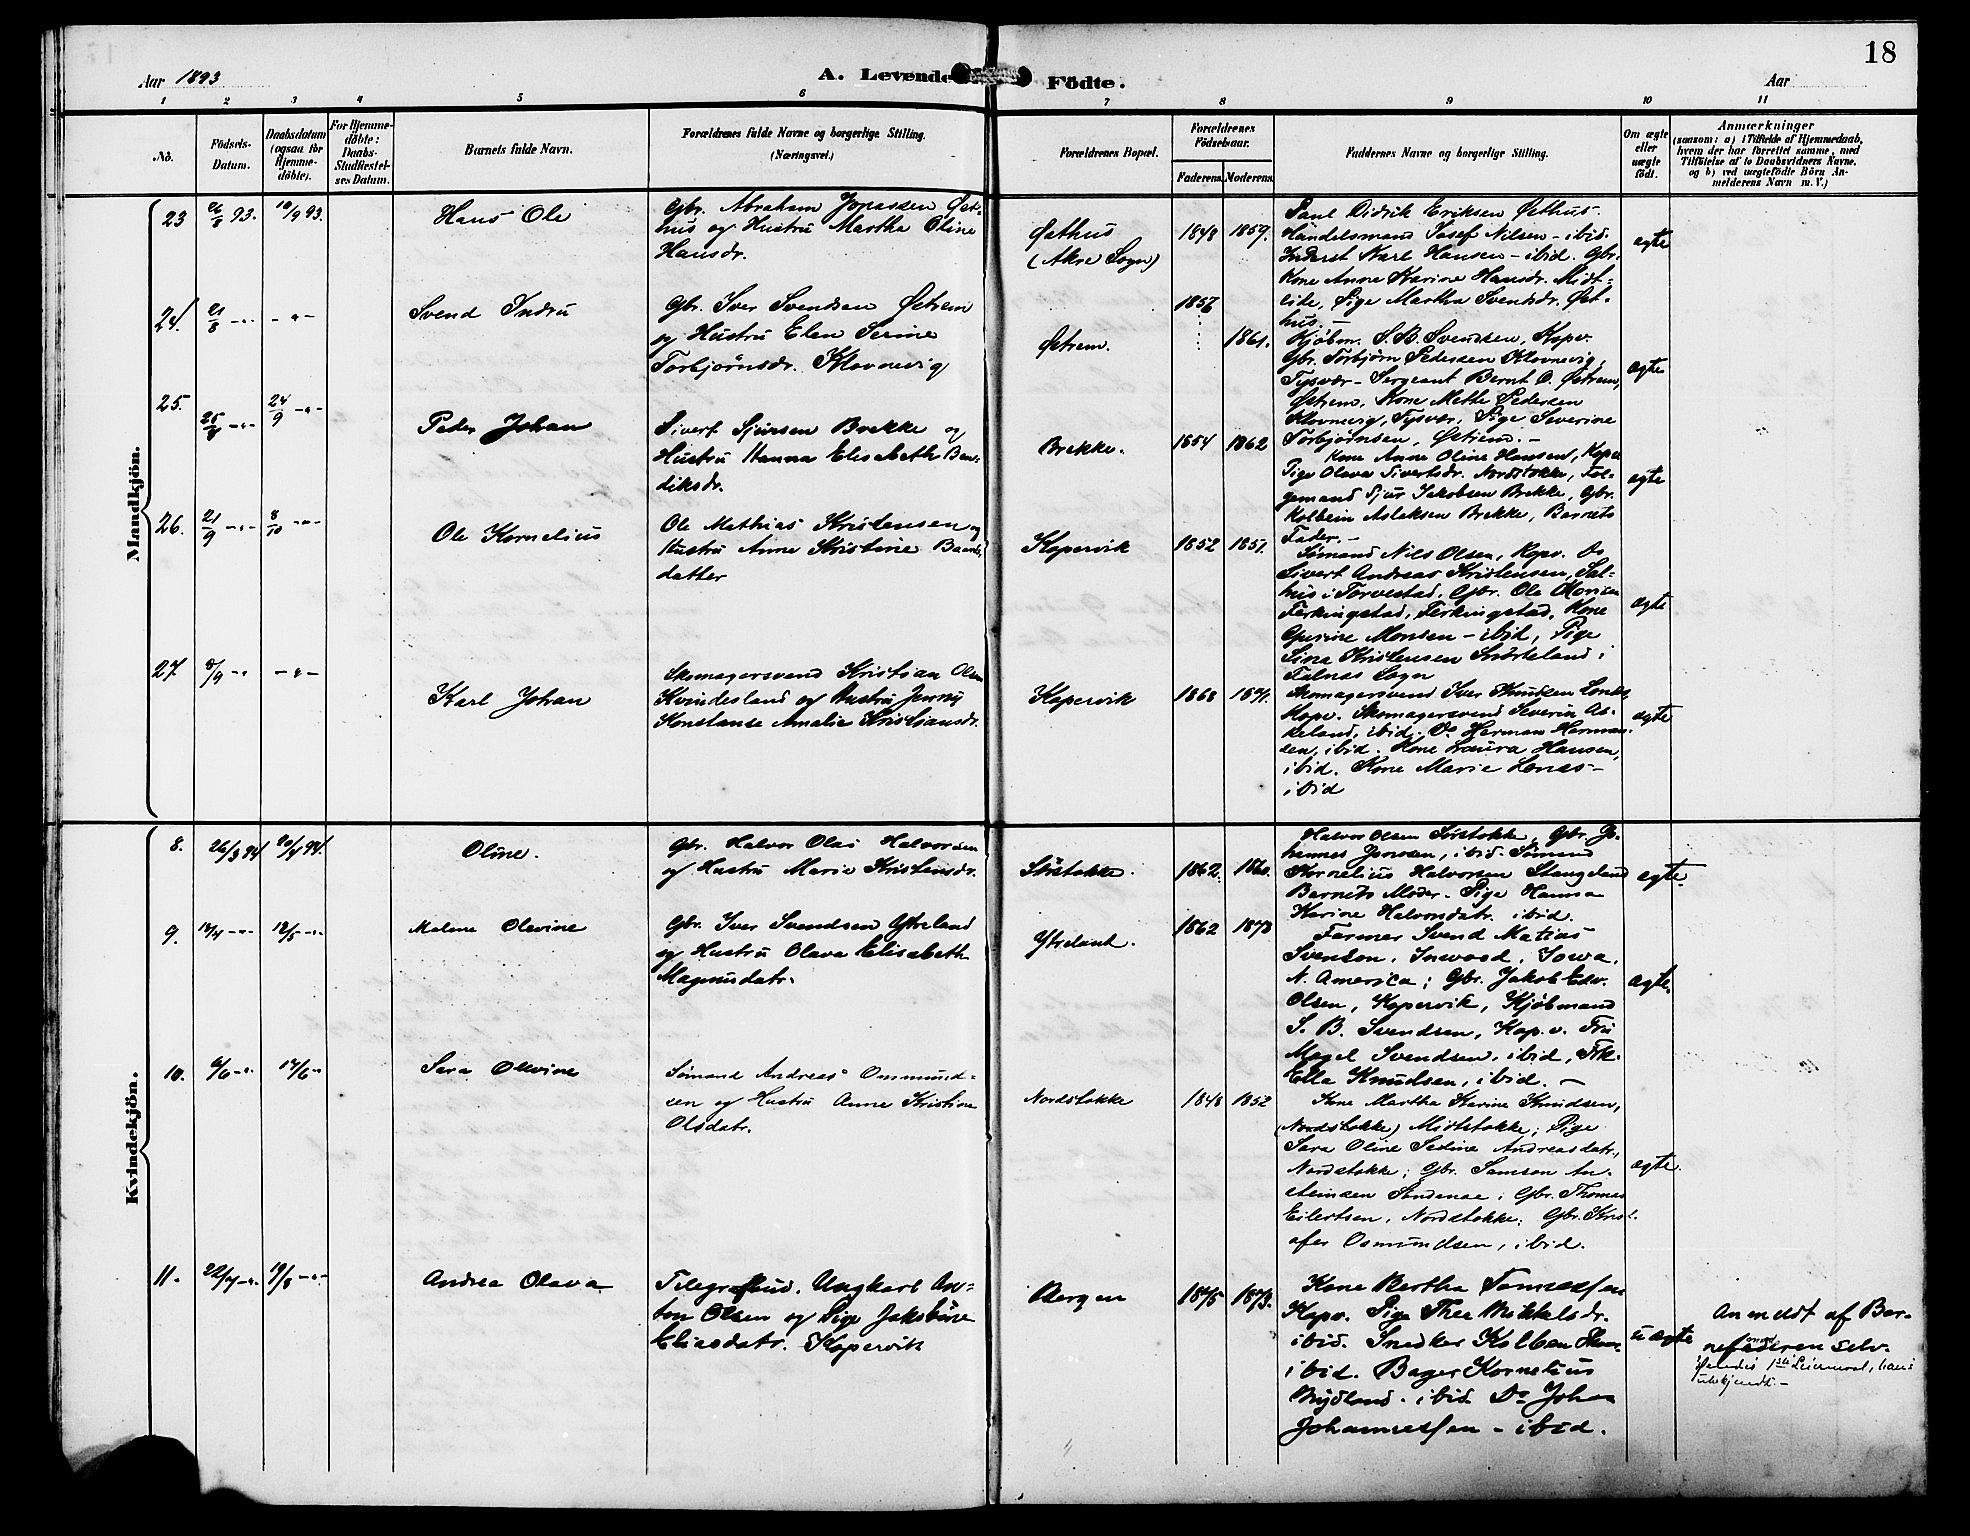 18
Aar 1893
A. Levende Födte.
Aar
1 2 3 4 5 6 7 8 9 10 11
No.
Födsels-
Datum.
Daabsdatum
(ogsaa for
Hjemme-
döbte).
For Hjemme-
döbte:
Daabs-
Stadfæstel-
ses Datum.
Barnets fulde Navn.
Forældrenes fulde Navne og borgerlige Stilling.
(Næringsvei.)
Forældrenes Bopæl.
Forældrenes
Födselsaar.
Faderens. Moderens.
Faddernes Navne og borgerlige Stilling.
Om ægte
eller
uægte
födt.
Anmærkninger
(saasom: a) i Tilfælde af Hjemmedaab,
hvem der har forrettet samme, med
Tilföielse af to Daabsvidners Navne,
og b) ved uægtefödte Börn An-
melderens Navn m. V.)
Mandkjön.
23 26/8 93. 10/9 93.
Hans Ole
Gbr. Abraham Jonassen Øst-
hus og Hustru Martha Oline
Hansdr.
Østhus
(Akre Sogn)
1848 1859.
Paul Didrik Eriksen Østhus.
Handelsmand Josef Nilsen - ibid.
Inderst Karl Hansen - ibid. Gbr.
Kone Anne Karine Hansdr. Midt-
lide, Pige Martha Svendsdr. Øst-
hus.
ægte
24. 21/8 -"- -"-
Svend Indru
Gbr. Iver Svendsen Østrem
og Hustru Elen Serine
Torbjørnsdr. Klovnevig
Østrem.
1857
1861.
Kjøbm. S. B. Svendsen, Kopv.
Gbr. Torbjørn Pedersen Klovnevig,
Tysvær - Sergeant Bernt O. Østrem,
Østrem, Kone Mette Pedersen
Klovnevig, Tysvær, Pige Severine
Torbjørnsen, Østrem. -
ægte
25. 25/8 -"- 24/9 -"-
Peder Johan
Sivert Sjursen Brekke og
Hustru Hanna Elisabeth Ben-
diksdr.
Brekke.
1854 1862
Kone Anne Oline Hansen, Kopv.
Pige Olava Sivertsdr. Nordstokke, Føl-
gemand Sjur Jakobsen Brekke, Gbr.
Kolbein Aslaksen Brekke, Barnets
Fader. -
ægte
26. 21/9 -"- 8/10 -"-
Ole Kornelius
Ole Mathias Kristensen og
Hustru Anne Kristine
datter
Kopervik
1852 1851.
Sømand Nils Olsen, Kopv. Do
Sivert Andreas Kristensen, Sal-
hus i Torvestad. Gbr. Ole Monsen
Ferkingstad, Ferkingstad. Kone
Monsen - ibid, Pige
Sina Kristensen Snørteland i
Falnes Sogn
ægte
27. 8/9 -"- -"-
Karl Johan
Skomagersvend Kristian Olsen
Kvindesland og Hustru Jenny
Konstanse Amalie Kristiansdr.
Kopervik
1868 1871.
Skomagersvend Iver Knudsen Lones
Kopv. Skomagersvend Severin As-
keland, ibid. Do Herman Herman-
sen, ibid. Kone Laura Hansen,
ibid. Kone Marie Lones -
ibid
ægte
Kvindekjön.
8. 26/3 94 20/4 94
Oline.
Gbr. Halvor Olai Halvorsen
og Hustru Marie Kristensdr.
Sørstokke.
1862. 1860.
Halvor Olsen Sørstokke, Gbr. Jo-
hannes Jonosen, ibid. Sømand
Kornelius Halvorsen Stangeland
Barnets Moder. Pige Hanna
Karine Halvorsdatr. ibid.
ægte.
9. 14/4 -"- 12/5 -"-
Malene Olevine
Gbr. Iver Svendsen Ytreland
og Hustru Olava Elisabeth
Magnusdatr.
Ytreland.
1862 1873
Farmer Svend Matias
Svenson. Inwood. Iowa.
N. America; Gbr. Jakob Edv.
Olsen, Kopervik, Kjøbmand
S. B. Svendsen, Kop. v. Fru
Magel Svendsen, ibid, Frk.
Ella Knudsen, ibid. -
ægte.
10. 6/6 -"- 17/6 -"
Sara Olevine
Sømand Andreas Ommund-
sen og Hustru Anne Kristine
Olsdatr.
Nordstokke
1848 1852
Kone Martha Karine Knudsen,
(Nordstokke) Midtstokke; Pige
Sara Oline Sedine Andreasdatr.,
Nordstokke; Gbr. Samson An-
steinsen Sandenae; Gbr. Thomas
Eilertsen, Nordstokke; Gbr. Krist-
ofer Osmundsen, ibid.
ægte.
11. 22/7 -"- 19/8 -"-
Andrea Olava
Telegrafbud. Ungkarl An-
ton Olsen og Pige Jakobine
Eliasdatr. Kopervik
Bergen
1875 1873.
Kone Bertha Tønnessen
Kopv. Pige Thea Mikkelsdr.
ibid. Snedker Kolben
ibid. Bager Kornelius
Nydland. ibid. Do Johan
Johannessen - ibid.
uægte
Anmeldt af Bar-
nefaderen selv.
1ste Leiermaal,